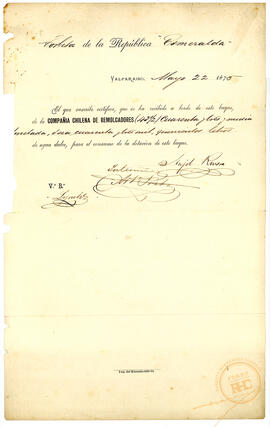 Corbeta de la República "Esmeralda"
VALPARAISO, Mayo 22 187
El que suscribe certifica, que se ha recibido a bordo de este buque,
de la COMPAÑIA CHILENA DE REMOLCADORES (42½) Cuarenta i dos i media
toneladas, o sea cuarenta i dos mil, quinientos litros
de agua dulce, para el consumo de la dotacion de este buque.
Anjel
V.° B.°
Imp. del